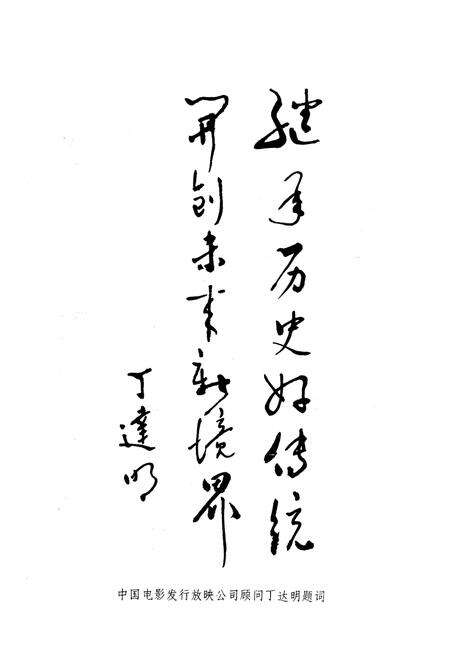 继承历史好传统
開创未来新境界
丁達明
中国电影发行放映公司顾问丁达明题词